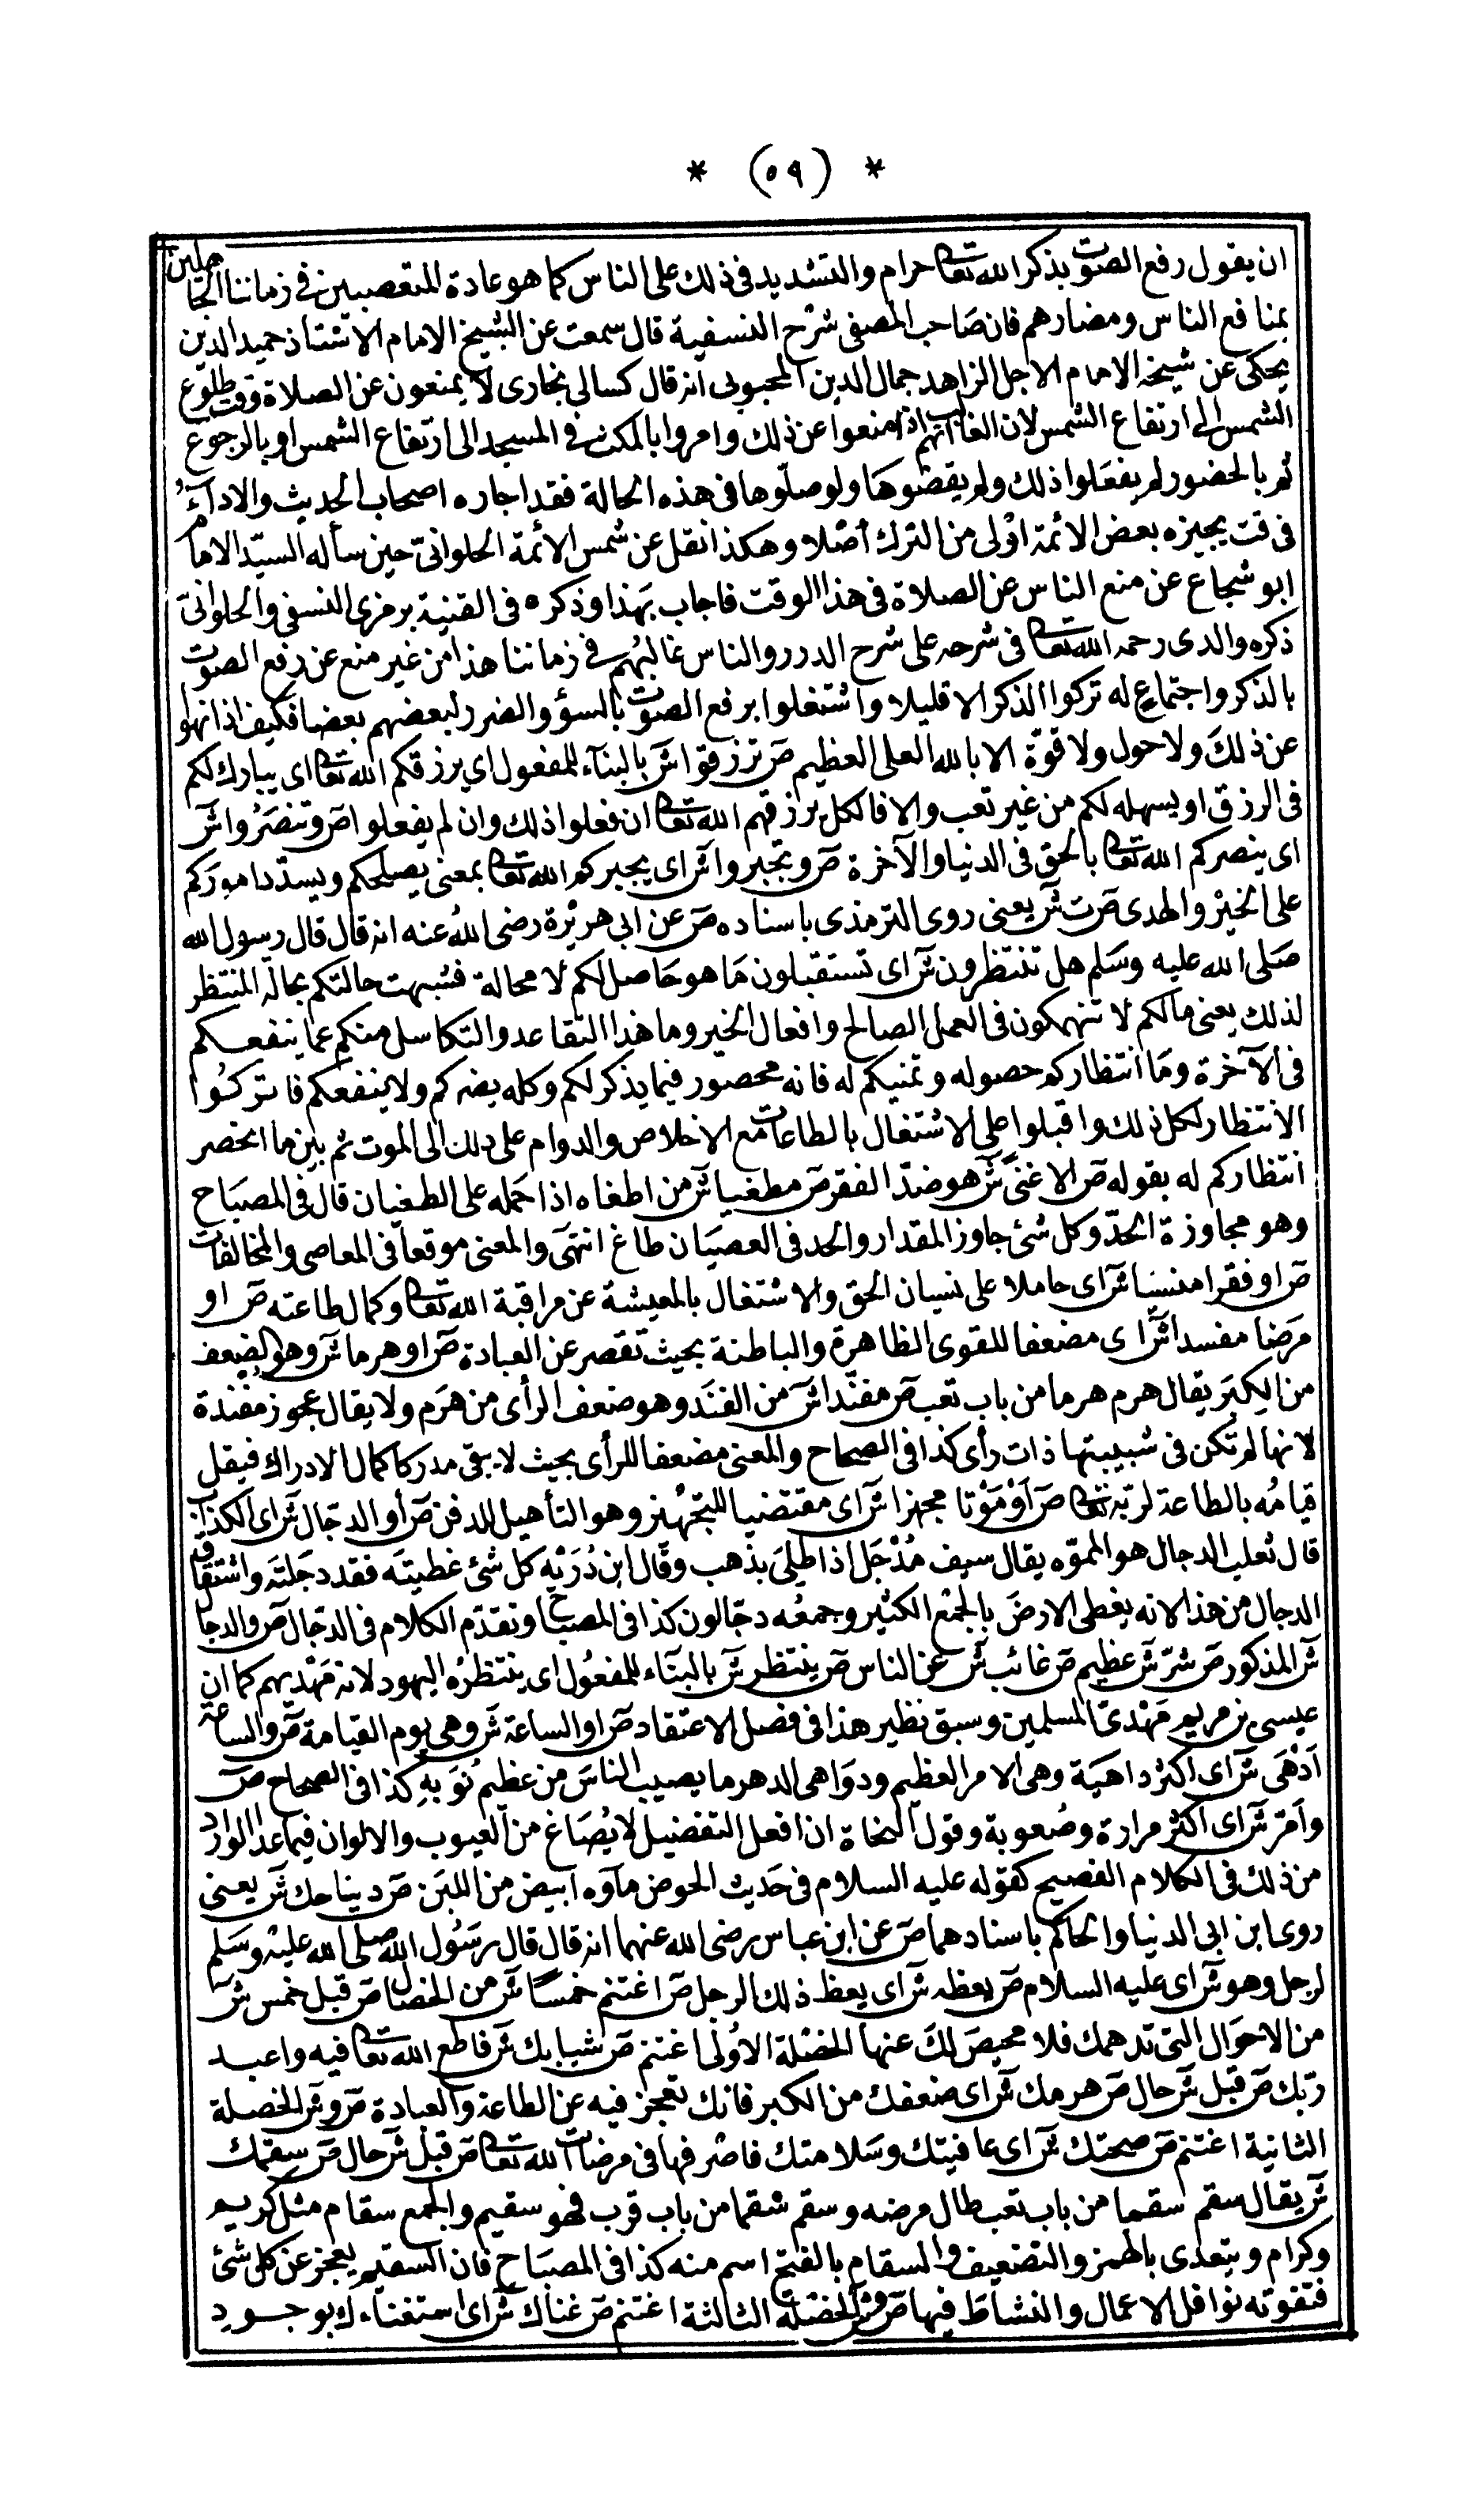 * (٥٩) *
ان يقول رفع الصوت بذكر الله تعالى حرام والتشديد فى ذلك على الناس كما هو عادة المتعصبين فى زماننا الجاهلين
بمنافع الناس ومضارهم فان صاحب المصفى شرح النسفية قال سمعت عن الشيخ الامام الاستاذ حميد الدين
يحكى عن شيخه الامام الاجل الزاهد جمال الدين المحبوبى انه قال كسالى بخارى لا يمنعون عن الصلاة وقت طلوع
الشمس الى ارتفاع الشمس لان الغالب انهم اذا منعوا عن ذلك وامروا بالمكث فى المسجد الى ارتفاع الشمس او بالرجوع
ثم بالحضور لم يفعلوا ذلك ولم يقضوها ولو صلوها فى هذه الحالة فقد اجازه اصحاب الحديث والاداء
فى وقت يجيزه بعض الائمة اولى من الترك أصلا وهكذا نقل عن شمس الأئمة الحلوانى حين سأله السيد الامام
ابو شجاع عن منع الناس عن الصلاة فى هذا الوقت فاجاب بهذا وذكره فى القنية برمزى النسفى والحلوانى
ذكره والدى رحمه الله تعالى فى شرحه على شرح الدرر والناس غالبهم فى زماننا هذا من غير منع عن رفع الصوت
بالذكر واجتماع له تركوا الذكر الا قليلا واشتغلوا برفع الصوت بالسؤ والضرر لبعضهم بعضا فكيف اذا نهوا
عن ذلك ولا حول ولا قوة الا بالله العلى العظيم ص ترزقوا ش بالبناء للمفعول اى يرزقكم الله تعالى اى يبارك لكم
فى الرزق او يسهله لكم من غير تعب والا فالكل يرزقهم الله تعالى ان فعلوا ذلك وان لم يفعلوا ص وتنصروا ش
اى ينصركم الله تعالى بالحق فى الدنيا والآخرة ص وتجبروا ش اى يجبركم الله تعالى بمعنى يصلحكم ويسدد اموركم
على الخير والهدى ص ت ش يعنى روى الترمذى باسناده ص عن ابى هريرة رضى الله عنه انه قال قال رسول الله
صلى الله عليه وسلم هل تنتظرون ش اى تستقبلون ما هو حاصل لكم لا محالة فشبهت حالتكم بحالة المنتظر
لذلك يعنى مالكم لا تنهمكون فى العمل الصالح وافعال الخير وما هذا التقاعد والتكاسل منكم عما ينفعكم
فى الآخرة وما انتظاركم حصوله وتمنيكم له فانه محصور فيما يذكر لكم وكله يضركم ولا ينفعكم فاتركوا
الانتظار لكل ذلك واقبلوا على الاشتغال بالطاعات مع الاخلاص والدوام على ذلك الى الموت ثم بين ما انحصر
انتظاركم له بقوله ص الا غنى ش هو ضد الفقر ص مطغيا ش من اطغاه اذا حمله على الطغيان قال فى المصباح
وهو مجاوزة الحد وكل شئ جاوز المقدار والحد فى العصيان طاغ انتهى والمعنى موقعا فى المعاصى والمخالفات
ص او فقرا منسيا ش اى حاملا على نسيان الحق والاشتغال بالمعيشة عن مراقبة الله تعالى وكمال طاعته ص او
مرضا مفسدا ش اى مضعفا للقوى الظاهرة والباطنة بحيث تقصر عن العبادة ص او هرما ش وهو الضعف
من الكبر يقال هرم هرما من باب تعب ص مفندا ش من الفند وهو ضعف الرأى من هرم ولا يقال عجوز مفندة
لانها لم تكن فى شبيبتها ذات رأى كذا فى الصحاح والمعنى مضعفا للرأى بحيث لا يبقى مدركا كمال الادراك فيقل
قيامه بالطاعة لربه تعالى ص او موتا مجهزا ش اى مقتضيا للتجهيز وهو التأهيل للدفن ص أو الدجال ش اى الكذاب
قال ثعلب الدجال هو المموه يقال سيف مدجل اذا طلى بذهب وقال ابن دريد كل شئ غطيته فقد دجلته واشتقاق
الدجال من هذا لانه يغطى الارض بالجمع الكثير وجمعه دجالون كذا فى المصباح وتقدم الكلام فى الدجال ص والدجال
ش المذكور ص شر ش عظيم ص غائب ش عن الناس ص ينتظر ش بالبناء للمفعول اى ينتظره اليهود لانه مهديهم كما ان
عيسى بن مريم مهدى المسلمين وسبق نظير هذا فى فصل الاعتقاد ص او الساعة ش وهى يوم القيامة ص والساعة
ادهى ش اى اكثر داهية وهى الامر العظيم ودواهى الدهر ما يصيب الناس من عظيم نوبه كذا فى الصحاح ص
وامر ش اى اكثر مرارة وصعوبة وقول النحاة ان افعل التفضيل لا يصاغ من العيوب والالوان فيما عدا الوارد
من ذلك فى الكلام الفصيح كقوله عليه السلام فى حديث الحوض ماؤه ابيض من اللبن ص دنيا حك ش يعنى
روى ابن ابى الدنيا والحاكم باسنادهما ص عن ابن عباس رضى الله عنهما انه قال قال رسول الله صلى الله عليه وسلم
لرجل وهو ش اى عليه السلام ص يعظه ش اى يعظ ذلك الرجل ص اغتنم خمسا ش من الخصال ص قبل خمس ش
من الاحوال التى تدهمك فلا محيص لك عنها الخصلة الاولى اغتنم ص شبابك ش فاطع الله تعالى فيه واعبد
ربك ص قبل ش حال ص هرمك ش اى ضعفك من الكبر فانك تعجز فيه عن الطاعة والعبادة ص و ش الخصلة
الثانية اغتنم ص صحتك ش اى عافيتك وسلامتك فاصرفها فى مرضات الله تعالى ص قبل ش حال ص سقمك
ش يقال سقم سقما من باب تعب طال مرضه وسقم سقما من باب قرب فهو سقيم والجمع سقام مثل كريم
وكرام ويتعدى بالهمز والتضعيف والسقام بالفتح اسم منه كذا فى المصباح فان السقيم يعجز عن كل شئ
فتفوته نوافل الاعمال والنشاط فيها ص و ش الخصلة الثالثة اغتنم ص غناك ش اى استغناءك بوجود